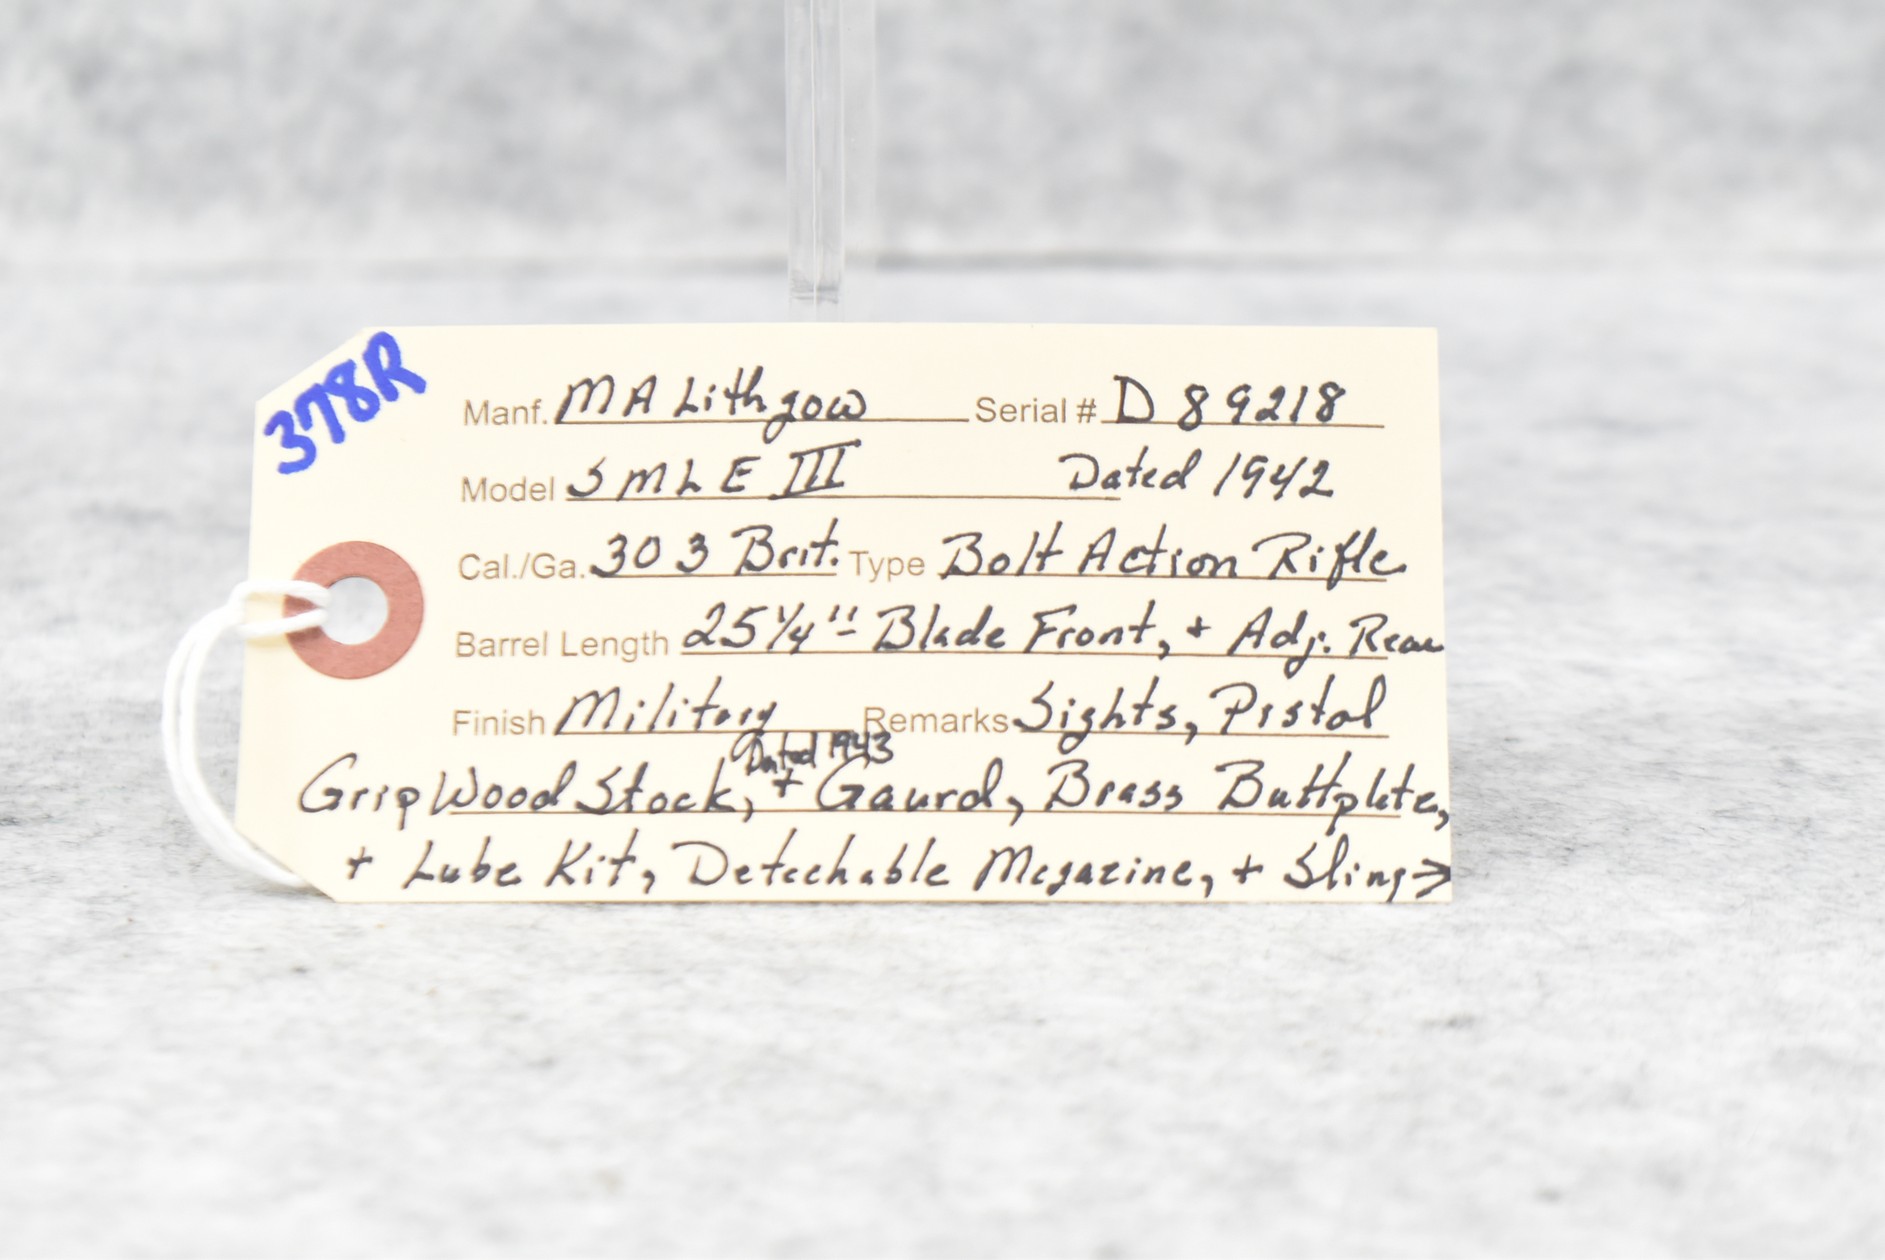 378R
Manf. MA Lithgow Serial # D 89218
Model SMLE III Dated 1942
Cal./Ga. 303 Brit. Type Bolt Action Rifle
Barrel Length 25 1/4"- Blade Front, + Adj. Rear
Finish Military Remarks Sights, Pistol
Dated 1943
Grip Wood Stock, + Gaurd, Brass Buttplate,
+ Lube Kit, Detachable Magazine, + Sling →